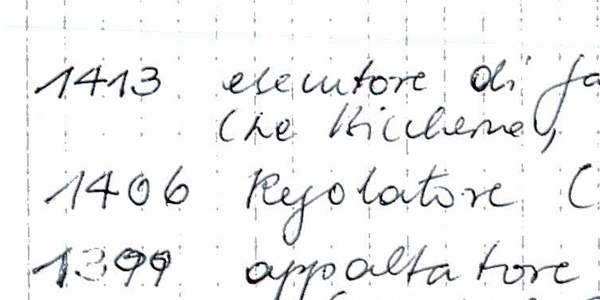 1413 esecutore di ga
(Le Biccherne,
1406 Regolatore (
1399 appaltatore